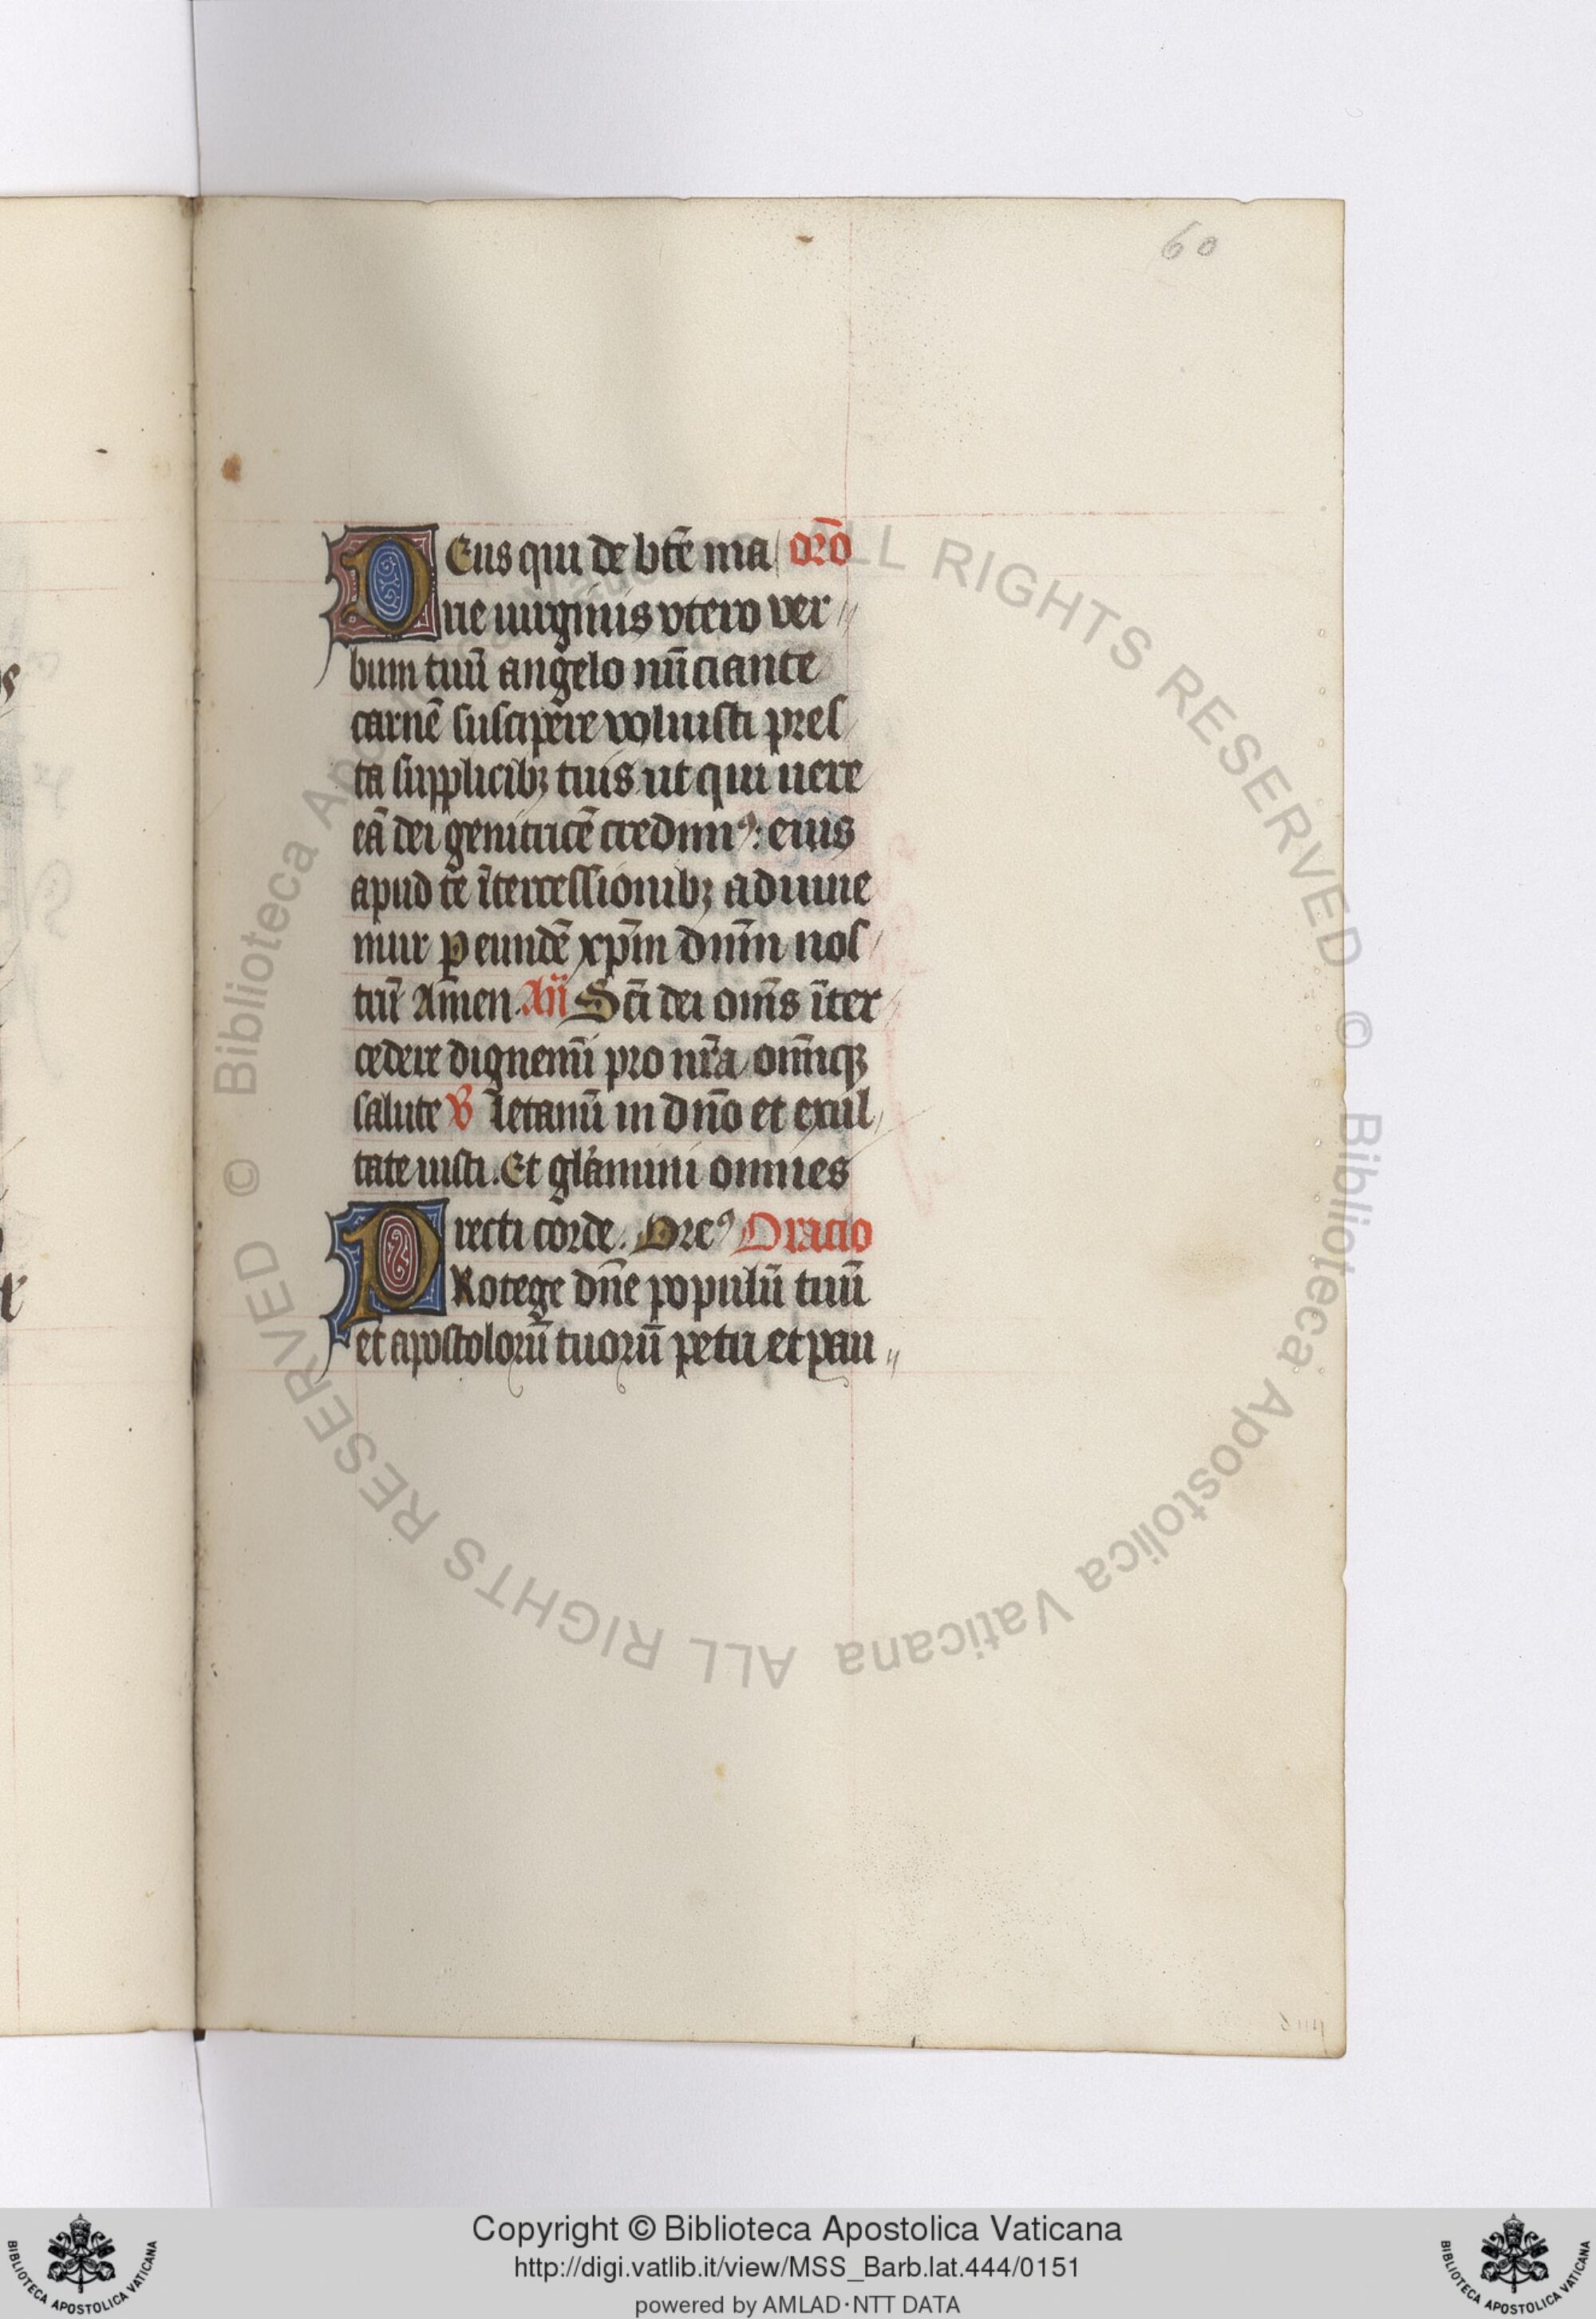 60
DEus qui de btē ma orō
rie uirginis vtero ver
bum tuū angelo nūciante
carnē suscipere voluisti pres
ta supplicibꝫ tuis ut qui uere
eā dei genitricē credimꝰ: eius
apud te ītercessionibꝫ adiuue
mur ꝑ eundē xp̄m dn̄m nos
trū Amen. An̄ Scī dei om̄s īter
cedere dignemī pro nr̄a om̄iūqꝫ
salute ℣ Letamī in dn̄o et exul
tate iusti. Et gl̄amini omnes
recti corde. Oreꝰ Oracio
PRotege dn̄e populū tuū
et apostolorū tuorū petri et pau
Copyright © Biblioteca Apostolica Vaticana
http://digi.vatlib.it/view/MSS_Barb.lat.444/0151
powered by AMLAD·NTT DATA
© Biblioteca Apostolica Vaticana ALL RIGHTS RESERVED © Biblioteca Apostolica Vaticana ALL RIGHTS RESERVED
BIBLIOTECA APOSTOLICA VATICANA
BIBLIOTECA APOSTOLICA VATICANA